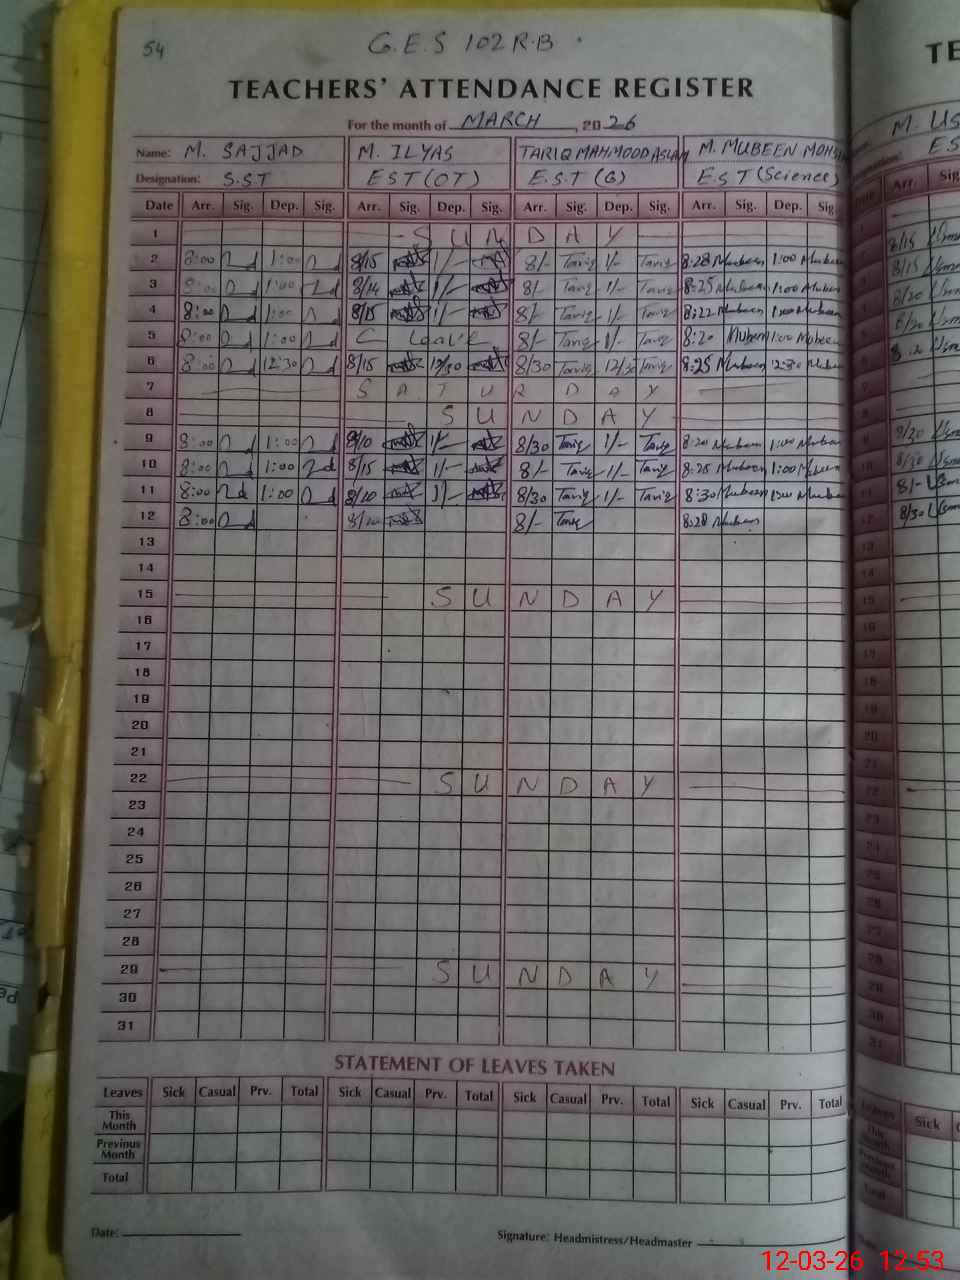 54
G.E.S 102 R.B
TEACHERS' ATTENDANCE REGISTER
For the month of MARCH, 2026
Name: M. SAJJAD M. ILYAS TARIQ MAHMOOD ASLAM M. MUBEEN MOHSIN
Designation: S.S.T EST (OT) E.S.T (G) E.S.T (Science)
Date Arr. Sig. Dep. Sig. Arr. Sig. Dep. Sig. Arr. Sig. Dep. Sig. Arr. Sig. Dep. Sig.
1 SUNDAY
2 8:00 1:00 8/15 1/- 8/- Tariq 1/- Tariq 8:28 Mubeen 1:00 Mubeen
3 8:00 1:00 8/14 1/- 8/- Tariq 1/- Tariq 8:25 Mubeen 1:00 Mubeen
4 8:00 1:00 8/15 1/- 8/- Tariq 1/- Tariq 8:22 Mubeen 1:00 Mubeen
5 8:00 1:00 C Leave 8/- Tariq 1/- Tariq 8:20 Mubeen 1:00 Mubeen
6 8:00 12:30 8/15 12/30 8/30 Tariq 12/30 Tariq 8:25 Mubeen 12:30 Mubeen
7 SATURDAY
8 SUNDAY
9 8:00 1:00 8/10 1/- 8/30 Tariq 1/- Tariq 8:20 Mubeen 1:00 Mubeen
10 8:00 1:00 8/15 1/- 8/- Tariq 1/- Tariq 8:28 Mubeen 1:00 Mubeen
11 8:00 1:00 8/10 1/- 8/30 Tariq 1/- Tariq 8:30 Mubeen 1:00 Mubeen
12 8:00 8/10 8/- Tariq 8:28 Mubeen
13
14
15 SUNDAY
16
17
18
19
20
21
22 SUNDAY
23
24
25
26
27
28
29 SUNDAY
30
31
STATEMENT OF LEAVES TAKEN
Leaves Sick Casual Prv. Total Sick Casual Prv. Total Sick Casual Prv. Total Sick Casual Prv. Total
This Month
Previous Month
Total
Date:
Signature: Headmistress/Headmaster
12-03-26 12:53